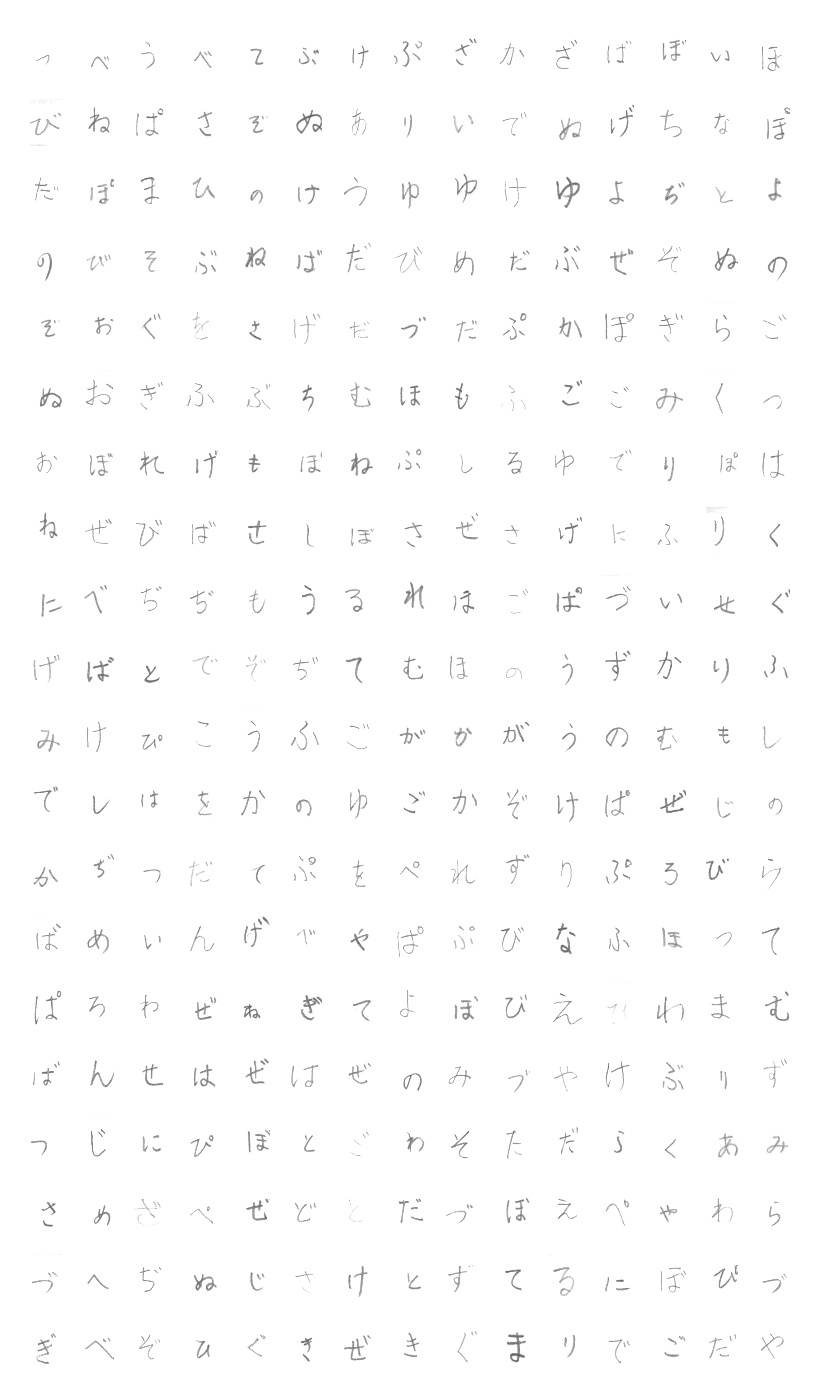 っべうべてぶけぷざかざばぼいほ
びねぱさぞぬありいでぬげちなぽ
だぽまひのけうゆゆけゆよぢとよ
のびそぶねばだびめだぶぜぞぬの
ぞおぐをさげだづだぷかぽぎらご
ぬおぎふぶちむほもふごごみくっ
おぼれげもぼねぷしるゆでりぽは
ねぜびばせしぼさぜさげにふりく
にべぢぢもうるれほごぱづいせぐ
げばとでぞぢてむほのうずかりふ
みけぴこうふごがかがうのむもし
でしはをかのゆごかぞけぱぜじの
かぢつだてぷをぺれずりぷろびら
ばめいんげべやぱぷびなふほつて
ぱろわぜねぎてよぼびえひわまむ
ばんせはぜはぜのみづやけぶりず
つじにぴぼとごわそただらくあみ
さめざぺぜどとだづぼえぺやわら
づへぢぬじさけとずてるにぼぴづ
ぎべぞひぐきぜきぐまりでごだや